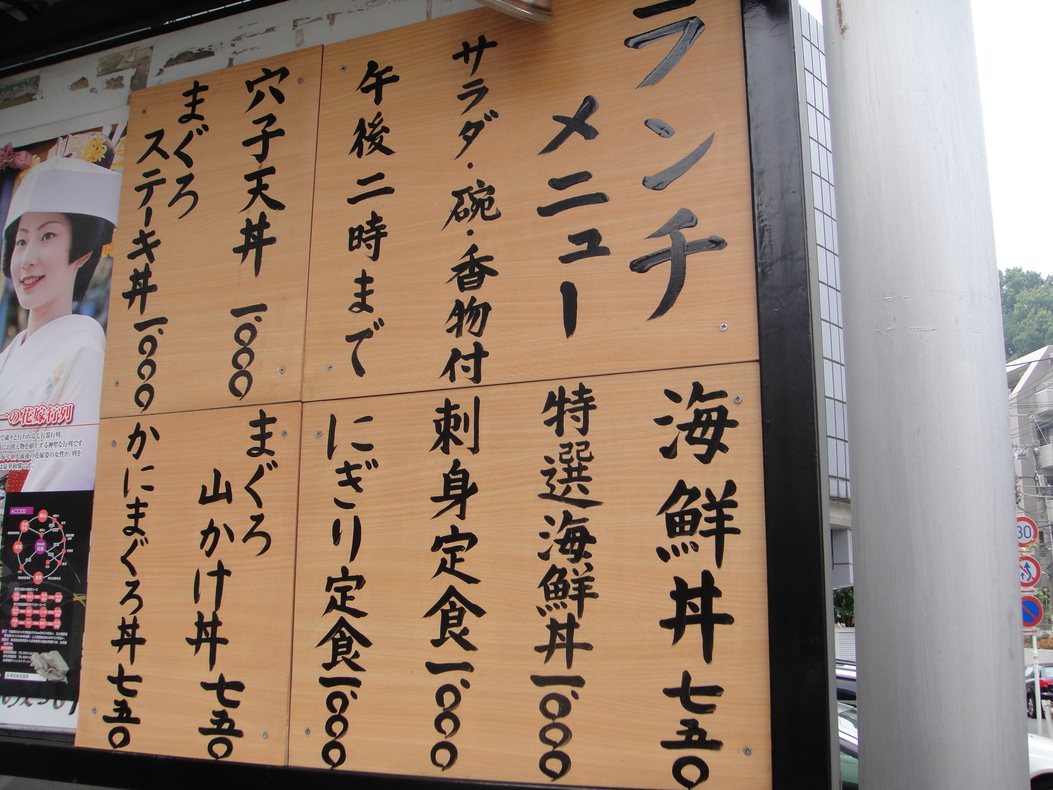 ランチ
メニュー
サラダ・碗・香物付
午後二時まで
海鮮丼 七五〇
特選海鮮丼 一、〇〇〇
刺身定食 一、〇〇〇
にぎり定食 一、〇〇〇
穴子天丼 一、〇〇〇
まぐろ
ステーキ丼 一、〇〇〇
まぐろ
山かけ丼 七五〇
かにまぐろ丼 七五〇
一の花嫁行列
ACCESS
30